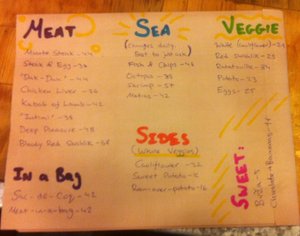 MEAT
Minute Steak - 44
Steak & Egg - 32
"Duk-Duk" - 44
Chicken Liver - 36
Kabob of Lamb - 42
- 38
Deep Pleasure - 38
Bloody Red Sushik - 38
In a Bag
Sac-de-Coq - 42
Meat-in-a-bag - 42
SEA
(Changes daily.
Best to just ask)
Fish & Chips - 48
Octopus - 38
Shrimp - 57
Matias - 42
SIDES
(White Veggies)
Cauliflower - 32
Sweet Potato - 16
potato - 16
VEGGIE
White Cauliflower - 29
Red Sushik - 28
Ratatouille - 34
Potato - 23
Eggs - 25
SWEET:
Chocolate & Bananas - 14